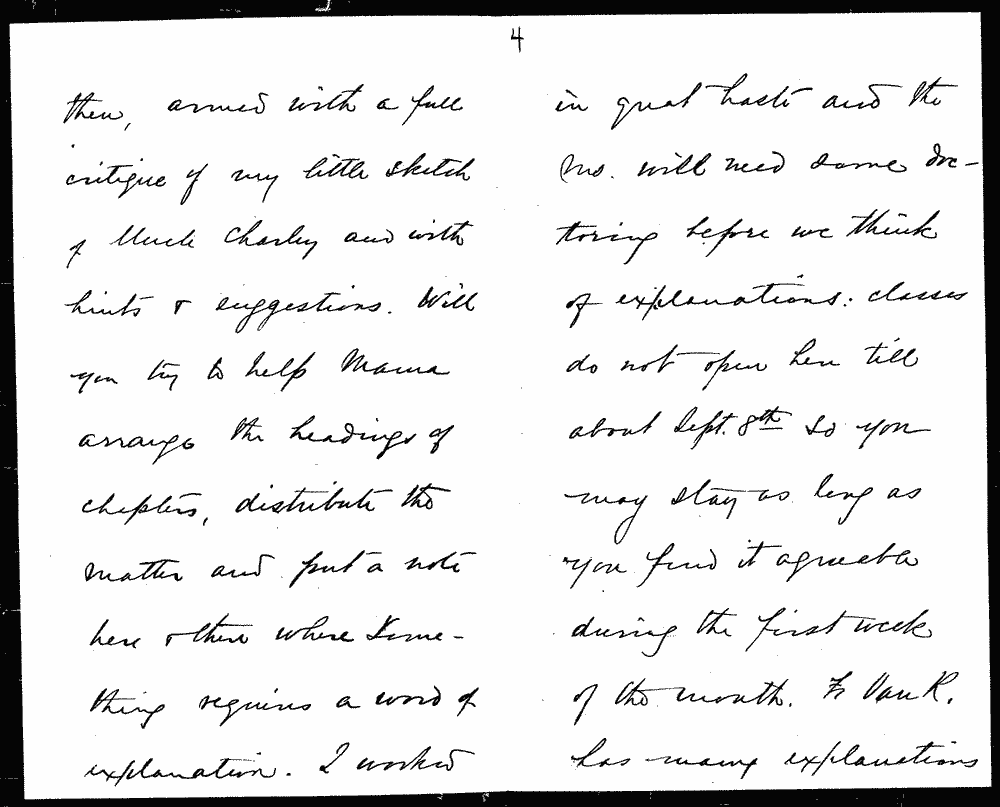 4
then, armed with a full
critique of my little sketch
of Uncle Charley and with
hints & suggestions. Will
you try to help Mama
arrange the headings of
chapters, distribute the
matter and put a note
here & there where some-
thing requires a word of
explanation. I worked
in great haste and the
Ms. will need some doc-
toring before we think
of explanations: classes
do not open here till
about Sept. 8th so you
may stay as long as
you find it agreeable
during the first week
of the month. Fr Van R.
has many explanations